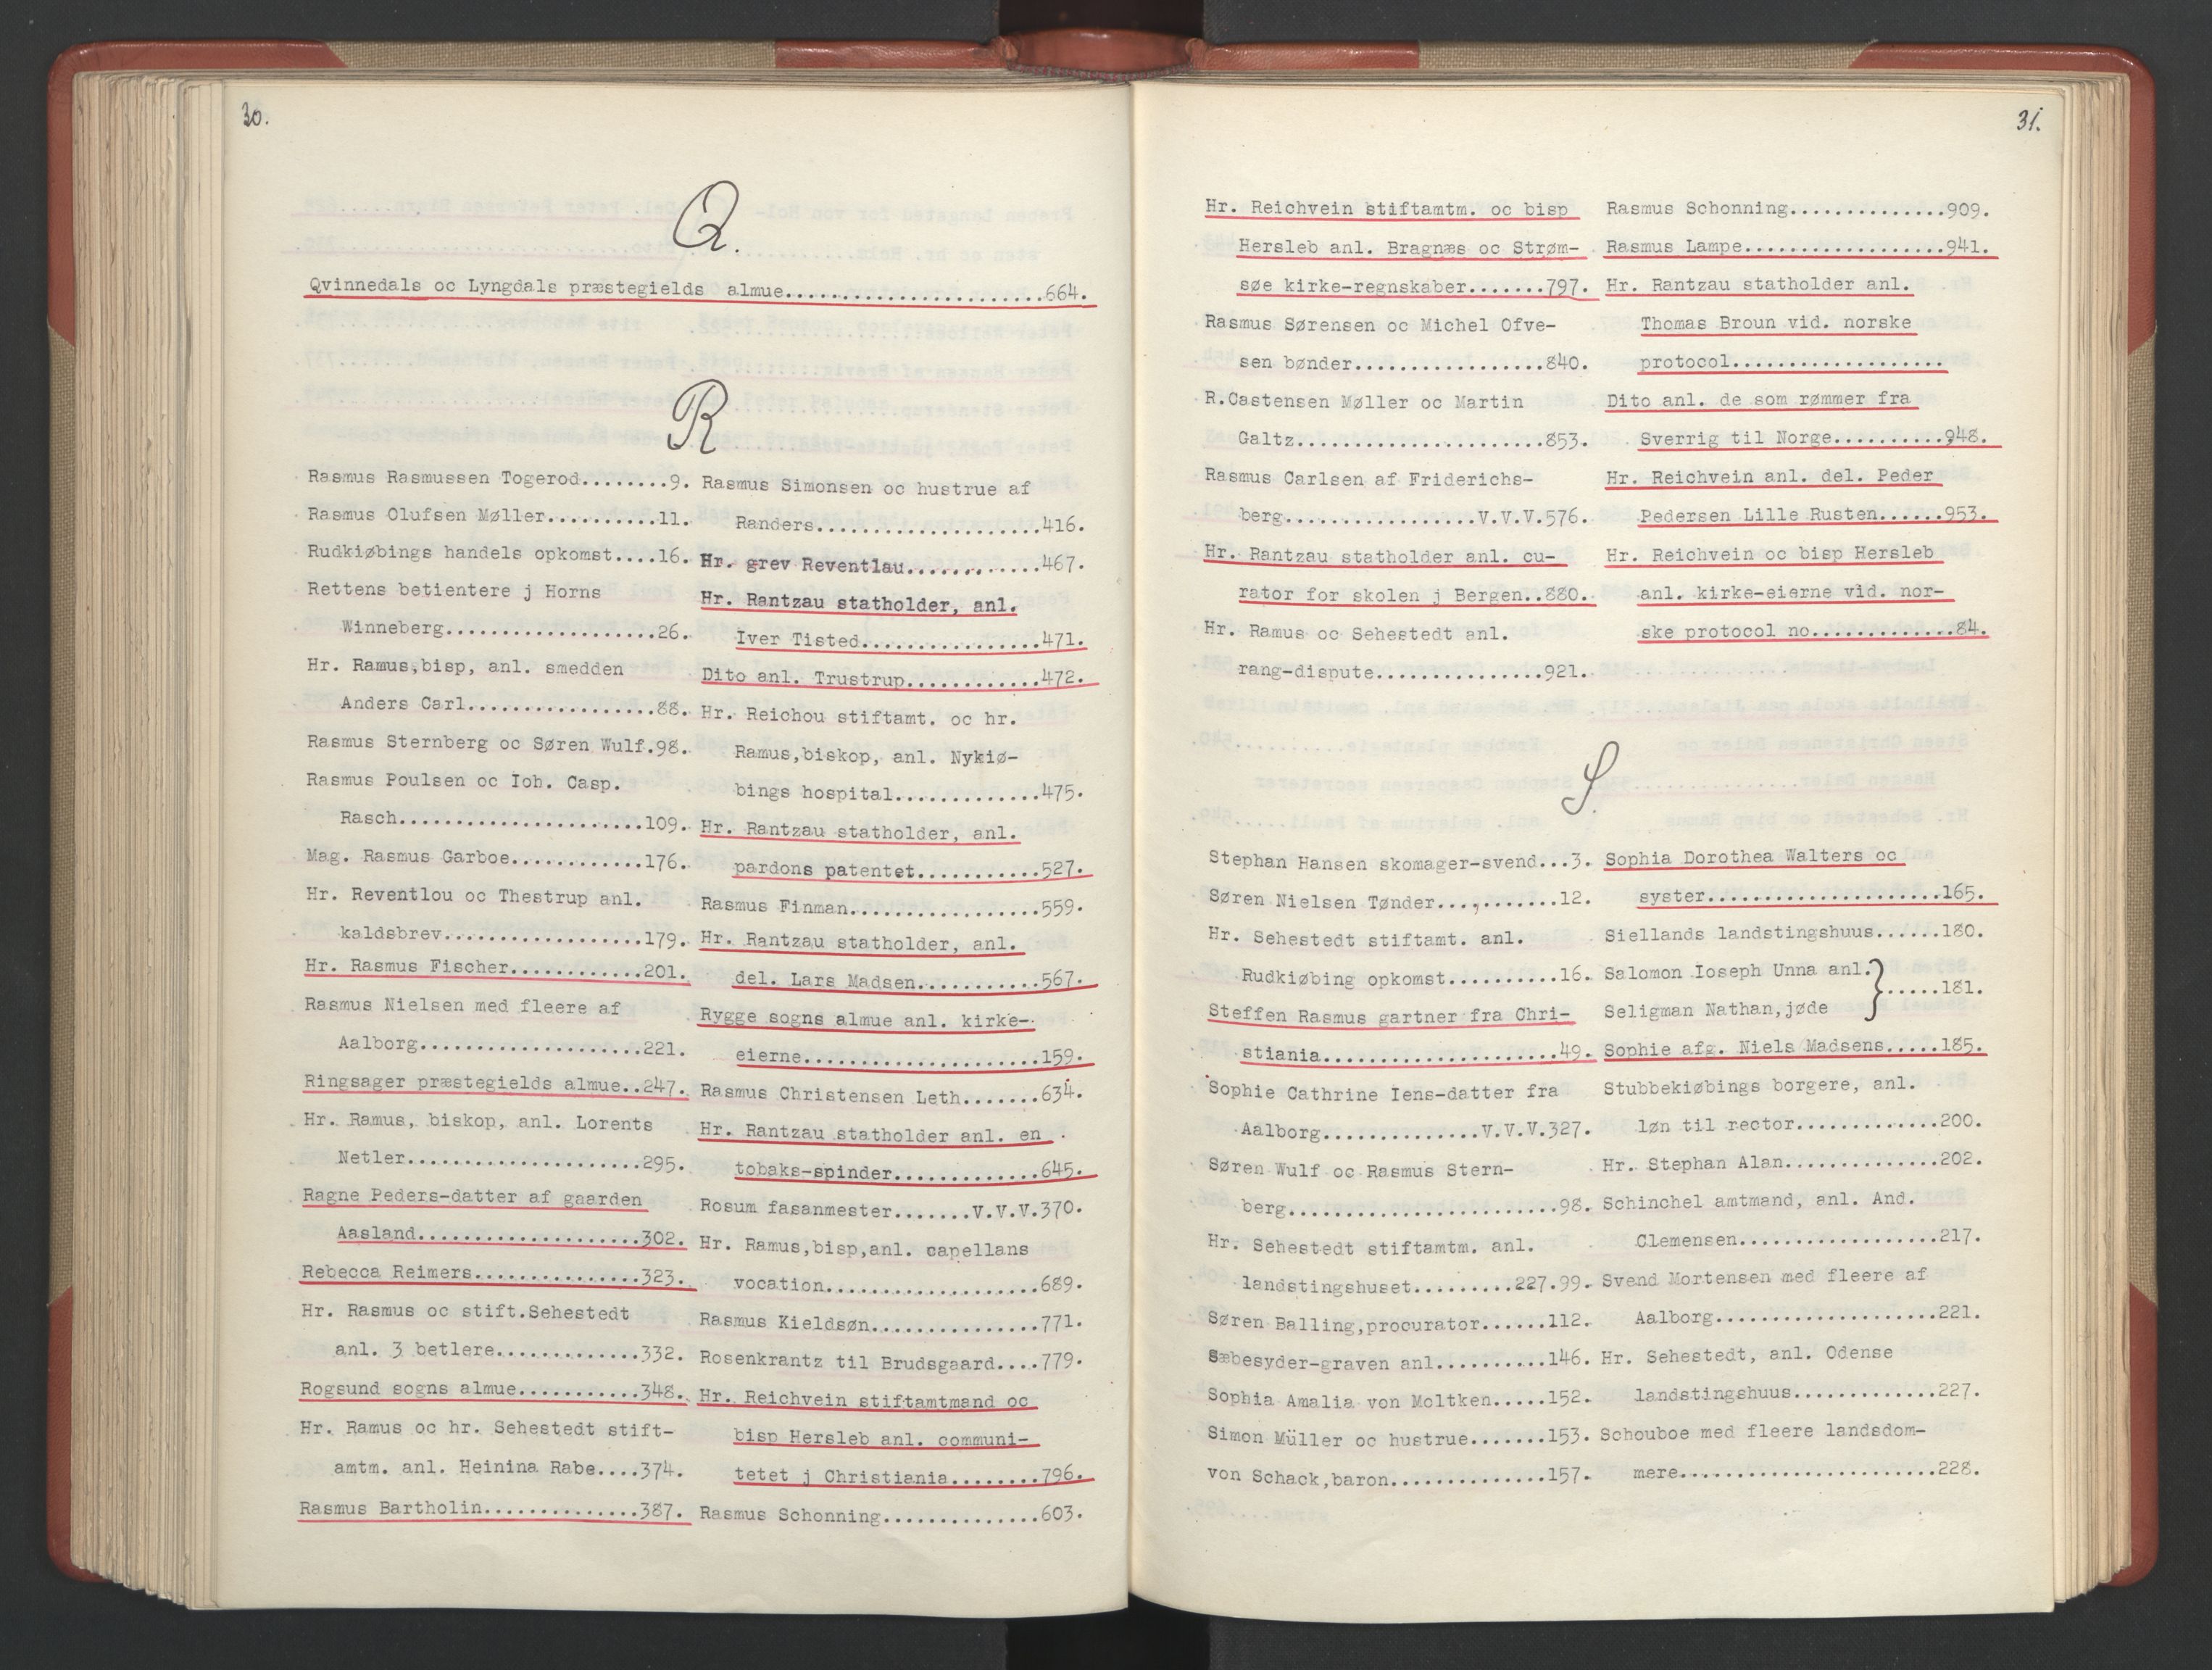 30.
Q.
Qvinnedals oc Lyngdals præstegields almue.......................664.
R
Rasmus Rasmussen Togerod........9.
Rasmus Olufsen Møller..........11.
Rudkiøbings handels opkomst....16.
Rettens betientere j Horns
Winneberg...................26.
Hr. Ramus,bisp, anl. smedden
Anders Carl.................88.
Rasmus Sternberg oc Søren Wulf.98.
Rasmus Poulsen oc Ioh. Casp.
Rasch......................109.
Mag. Rasmus Garboe............176.
Hr. Reventlou oc Thestrup anl.
kaldsbrev..................179.
Hr. Rasmus Fischer............201.
Rasmus Nielsen med fleere af
Aalborg....................221.
Ringsager præstegields almue..247.
Hr. Ramus, biskop, anl. Lorents
Netler.....................295.
Ragne Peders-datter af gaarden
Aasland....................302.
Rebecca Reimers...............323.
Hr. Rasmus oc stift.Sehestedt
anl. 3 betlere.............332.
Rogsund sogns almue...........348.
Hr. Ramus oc hr. Sehestedt stift-
amtm. anl. Heinina Rabe....374.
Rasmus Bartholin..............387.
Rasmus Simonsen oc hustrue af
Randers....................416.
Hr. grev Reventlau............467.
Hr. Rantzau statholder, anl.
Iver Tisted................471.
Dito anl. Trustrup............472.
Hr. Reichou stiftamt. oc hr.
Ramus,biskop, anl. Nykiø-
bings hospital.............475.
Hr. Rantzau statholder, anl.
pardons patentet...........527.
Rasmus Finman.................559.
Hr. Rantzau statholder, anl.
del. Lars Madsen...........567.
Rygge sogns almue anl. kirke-
eierne.....................159.
Rasmus Christensen Leth.......634.
Hr. Rantzau statholder anl. en
tobaks-spinder.............645.
Rosum fasanmester.......V.V.V.370.
Hr. Ramus,bisp,anl. capellans
vocation...................689.
Rasmus Kieldsøn...............771.
Rosenkrantz til Brudsgaard....779.
Hr. Reichvein stiftamtmand oc
bisp Hersleb anl. communi-
tetet j Christiania........796.
Rasmus Schonning..............603.
31.
Hr. Reichvein stiftamtm. oc bisp
Hersleb anl. Bragnæs oc Strøm-
søe kirke-regnskaber.......797.
Rasmus Sørensen oc Michel Ofve-
sen bønder.................840.
R.Castensen Møller oc Martin
Galtz......................853.
Rasmus Carlsen af Friderichs-
berg.................V.V.V.576.
Hr. Rantzau statholder anl. cu-
rator for skolen j Bergen..880.
Hr. Ramus oc Sehestedt anl.
rang-dispute...............921.
Rasmus Schonning..............909.
Rasmus Lampe..................941.
Hr. Rantzau statholder anl.
Thomas Broun vid. norske
protocol...................
Dito anl. de som rømmer fra
Sverrig til Norge..........948.
Hr. Reichvein anl. del. Peder
Pedersen Lille Rusten......953.
Hr. Reichvein oc bisp Hersleb
anl. kirke-eierne vid. nor-
ske protocol no.............84.
S.
Stephan Hansen skomager-svend...3.
Søren Nielsen Tønder...........12.
Hr. Sehestedt stiftamt. anl.
Rudkiøbing opkomst..........16.
Steffen Rasmus gartner fra Chri-
stiania.....................49.
Sophie Cathrine Iens-datter fra
Aalborg..............V.V.V.327.
Søren Wulf oc Rasmus Stern-
berg........................98.
Hr. Sehestedt stiftamtm. anl.
landstingshuset.........227.99.
Søren Balling,procurator......112.
Sæbesyder-graven anl..........146.
Sophia Amalia von Moltken.....152.
Simon Müller oc hustrue.......153.
von Schack,baron..............157.
Sophia Dorothea Walters oc
syster.....................165.
Siellands landstingshuus......180.
Salomon Ioseph Unna anl.
}.....181.
Seligman Nathan,jøde
Sophie afg. Niels Madsens.....185.
Stubbekiøbings borgere, anl.
løn til rector.............200.
Hr. Stephan Alan..............202.
Schinchel amtmand, anl. And.
Clemensen..................217.
Svend Mortensen med fleere af
Aalborg....................221.
Hr. Sehestedt, anl. Odense
landstingshuus.............227.
Schouboe med fleere landsdom-
mere.......................228.